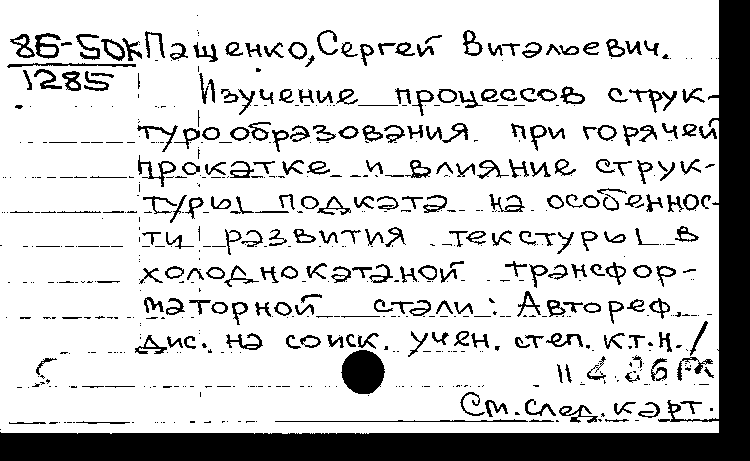 86-50к Пащенко, Сергей Витальевич.
1285
Изучение процессов струк-
турообразования при горячей
прокатке и влияние струк-
туры подката на особеннос-
ти развития текстуры в
холоднокатаной трансфор-
маторной стали: Автореф.
дис. на соиск. учен. степ. к.т.н. /
5 11 4 86
См. след. карт.